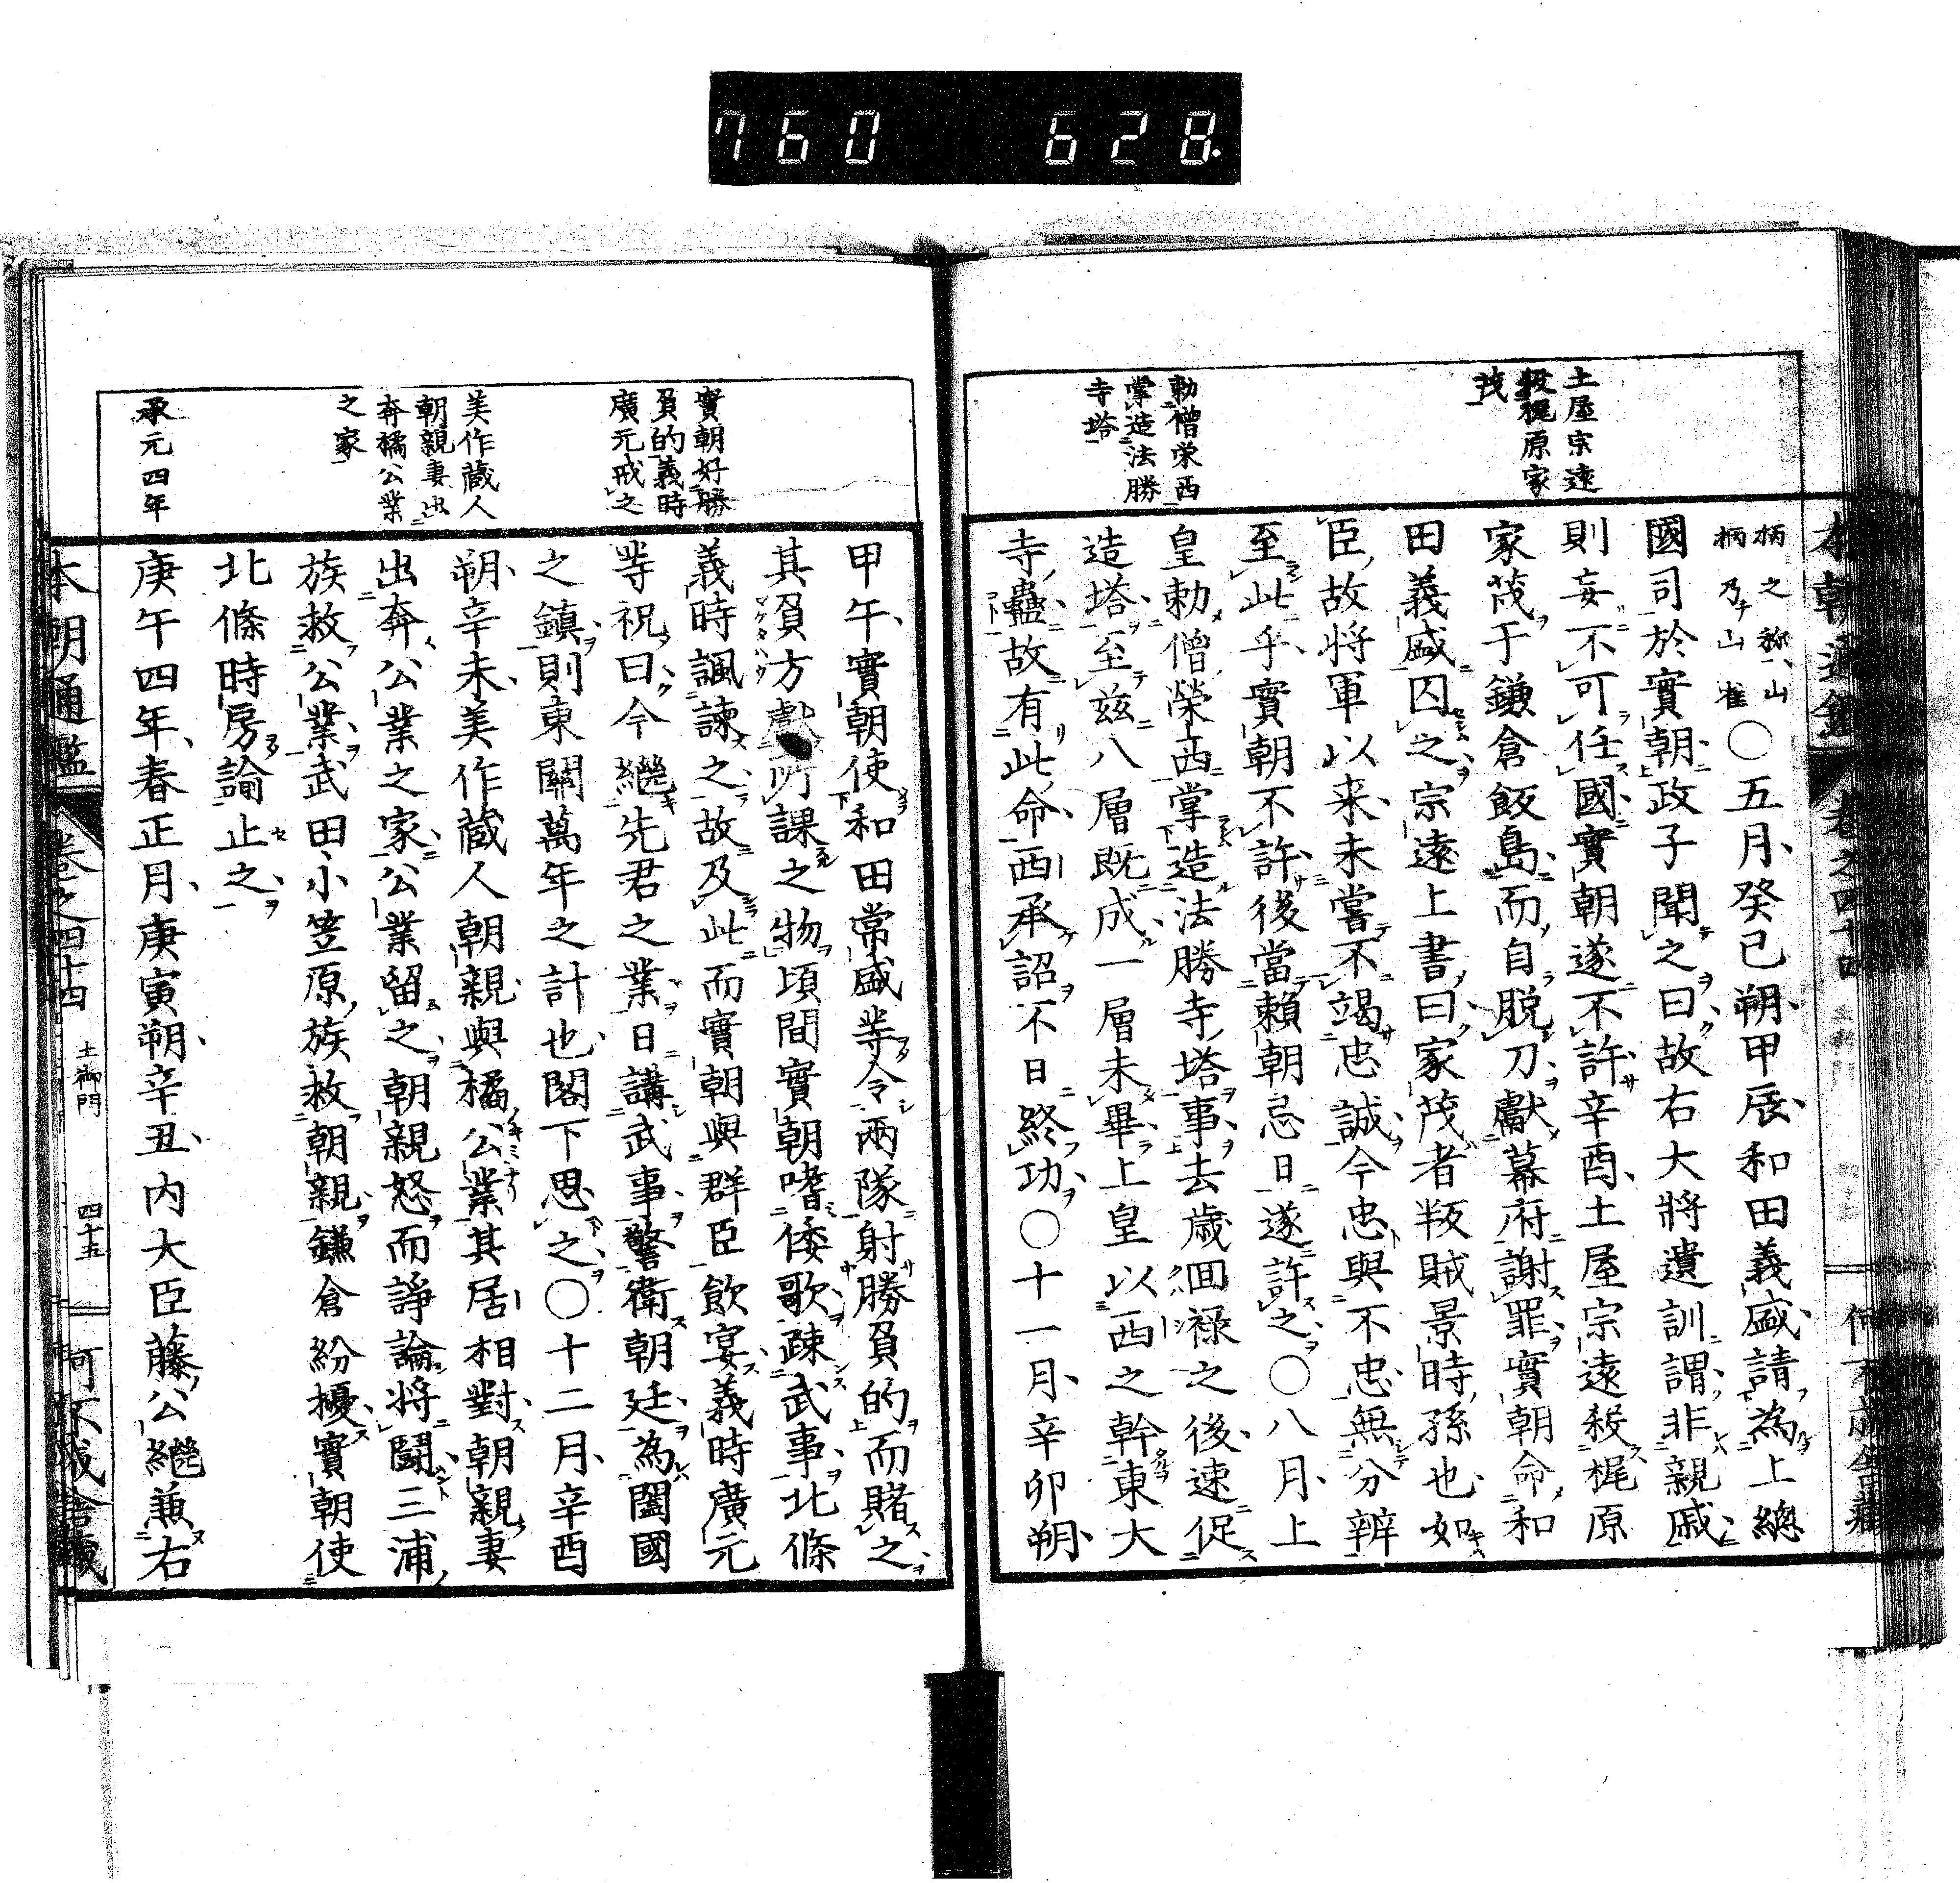 760 628
土屋宗遠
殺梶原家
茂
勅僧栄西
掌造法勝
寺塔
柄之称、山
柄乃山雀
〇五月癸巳朔甲辰和田義盛請為上總
國司於實朝政子聞之曰故右大將遺訓謂非親戚
則妄不可任國實朝遂不許辛酉土屋宗遠殺梶原
家茂于鎌倉飯島而自脱刀獻幕府謝罪實朝命和
田義盛囚之宗遠上書曰家茂者叛賊景時孫也如
臣故将軍以来未嘗不竭忠誠今忠與不忠無分辨
至此乎實朝不許後當頼朝忌日遂許之〇八月上
皇勅僧榮西掌造法勝寺塔事去歳回禄之後速促
造塔至茲八層既成一層未畢上皇以西之幹東大
寺蠱故有此命西承詔不日終功〇十一月辛卯朔
實朝好勝
負的義時
廣元戒之
美作蔵人
朝親妻出
奔橘公業
之家
承元四年
甲午實朝使和田常盛等令兩隊射勝負的而賭之
其負方獻所課之物頃間實朝嗜倭歌疎武事北條
義時諷諫之故及此而實朝與群臣飲宴義時廣元
等祝曰今繼先君之業日講武事警衛朝廷為闔國
之鎮則東關萬年之計也閣下思之〇十二月辛酉
朔辛未美作蔵人朝親與橘公業其居相對朝親妻
出奔公業之家公業留之朝親怒而諍論将鬪三浦
族救公業武田小笠原族救朝親鎌倉紛擾實朝使
北條時房諭止之
庚午四年春正月庚寅朔辛丑内大臣藤公繼兼右
本朝通鑑 卷之四十四 土御門 四十五